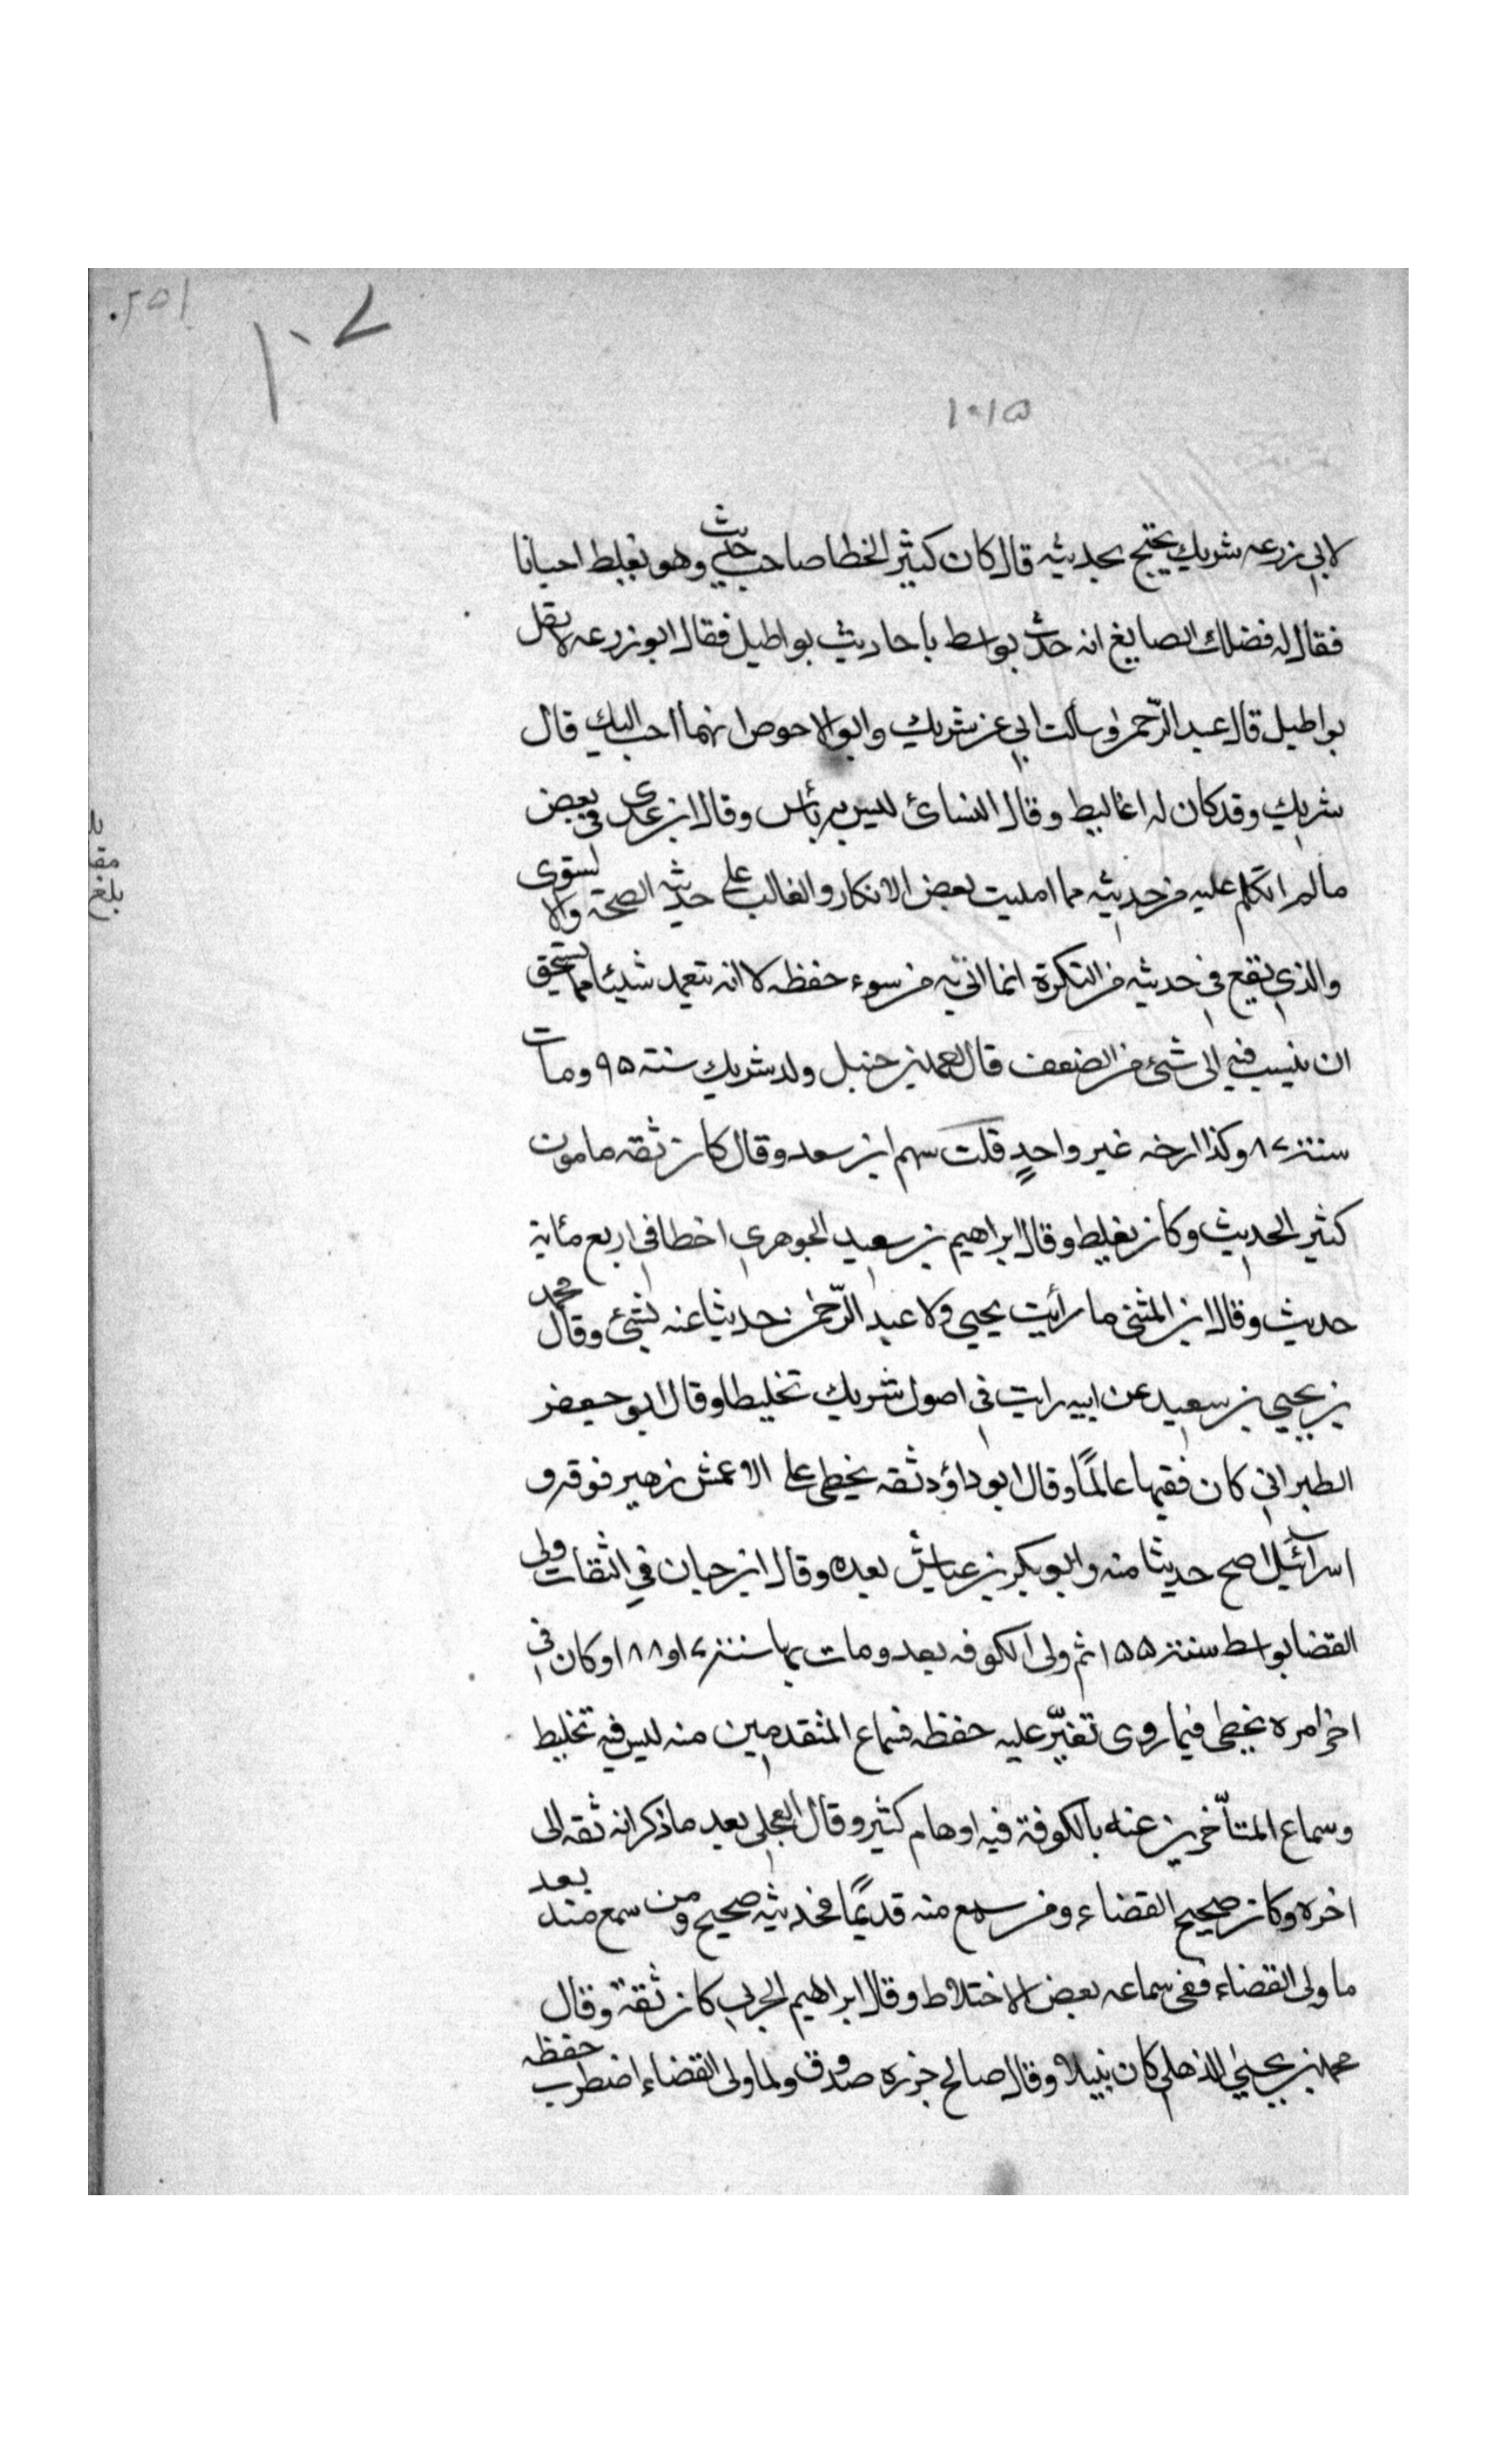 ١٥٢٠
١٠٧
١٠١٥
لابي زرعه شريك يحتج بحديثه قال كان كثير الخطا صاحب حديث وهو يغلط احيانا
فقال له فضلك الصايغ انه حدث بواسط باحاديث بواطيل فقال ابو زرعه لا تقل
بواطيل قال عبد الرّحمن وسألت ابي عن شريك وابو الاحوص ايهما احب اليك قال
شريك وقد كان له اغاليط وقال النسائ ليس به بأس وقال ابن عدى فى بعض
مالم اتكلم عليه من حديثه مما امليت بعض الانكار والغالب على حديثه الصحة والاستوى
والذي يقع في حديثه من النكرة انما اتي به من سوء حفظه لا انه يتعمد شيئا مما يستحق
ان ينسب فيه الى شئ من الضعف قال احمد بن حنبل ولد شريك سنة ٩٥ ومات
سنة ٨٧ وكذا ارخه غير واحدٍ قلت سهم ابن سعد وقال كان ثقه مامون
كثير الحديث وكان يغلط وقال ابراهيم بن سعيد الجوهري اخطا في اربع مائة
حديث وقال ابن المثنى ما رأيت يحيى ولا عبد الرّحمن حدثيا عنه بشئ وقال محمد
بن يحيى بن سعيد عن ابيه رايت في اصول شريك تخليطا وقال ابو جعفر
الطبراني كان فقيها عالمًا وقال ابو داؤد ثقه يخطى على الاعمش زهير فوقه و
اسرائيل اصح حديثا منه وابو بكر بن عياش بعده وقال ابن حبان في الثقات ولى
القضا بواسط سنة ١٥٥ ثم ولى الكوفه بعد ومات بها سنة ٧ او ١٨٨ وكان في
اخر امره يخطى فيما روى تغيّر عليه حفظه فسماع المتقدمين منه ليس فيه تخليط
وسماع المتأخرين عنه بالكوفة فيه اوهام كثير وقال العجلى بعد ما ذكر انه ثقه الى
اخره وكان صحيح القضاء ومن سمع منه قديمًا فحديثه صحيح ومن سمع منه بعد
ما ولى القضاء ففى سماعه بعض الاختلاط وقال ابراهيم الحربي كان ثقة وقال
محمد بن يحيى الذهلي كان نبيلا وقال صالح جزره صدوق ولما ولى القضاء اضطرب حفظه
بلغ